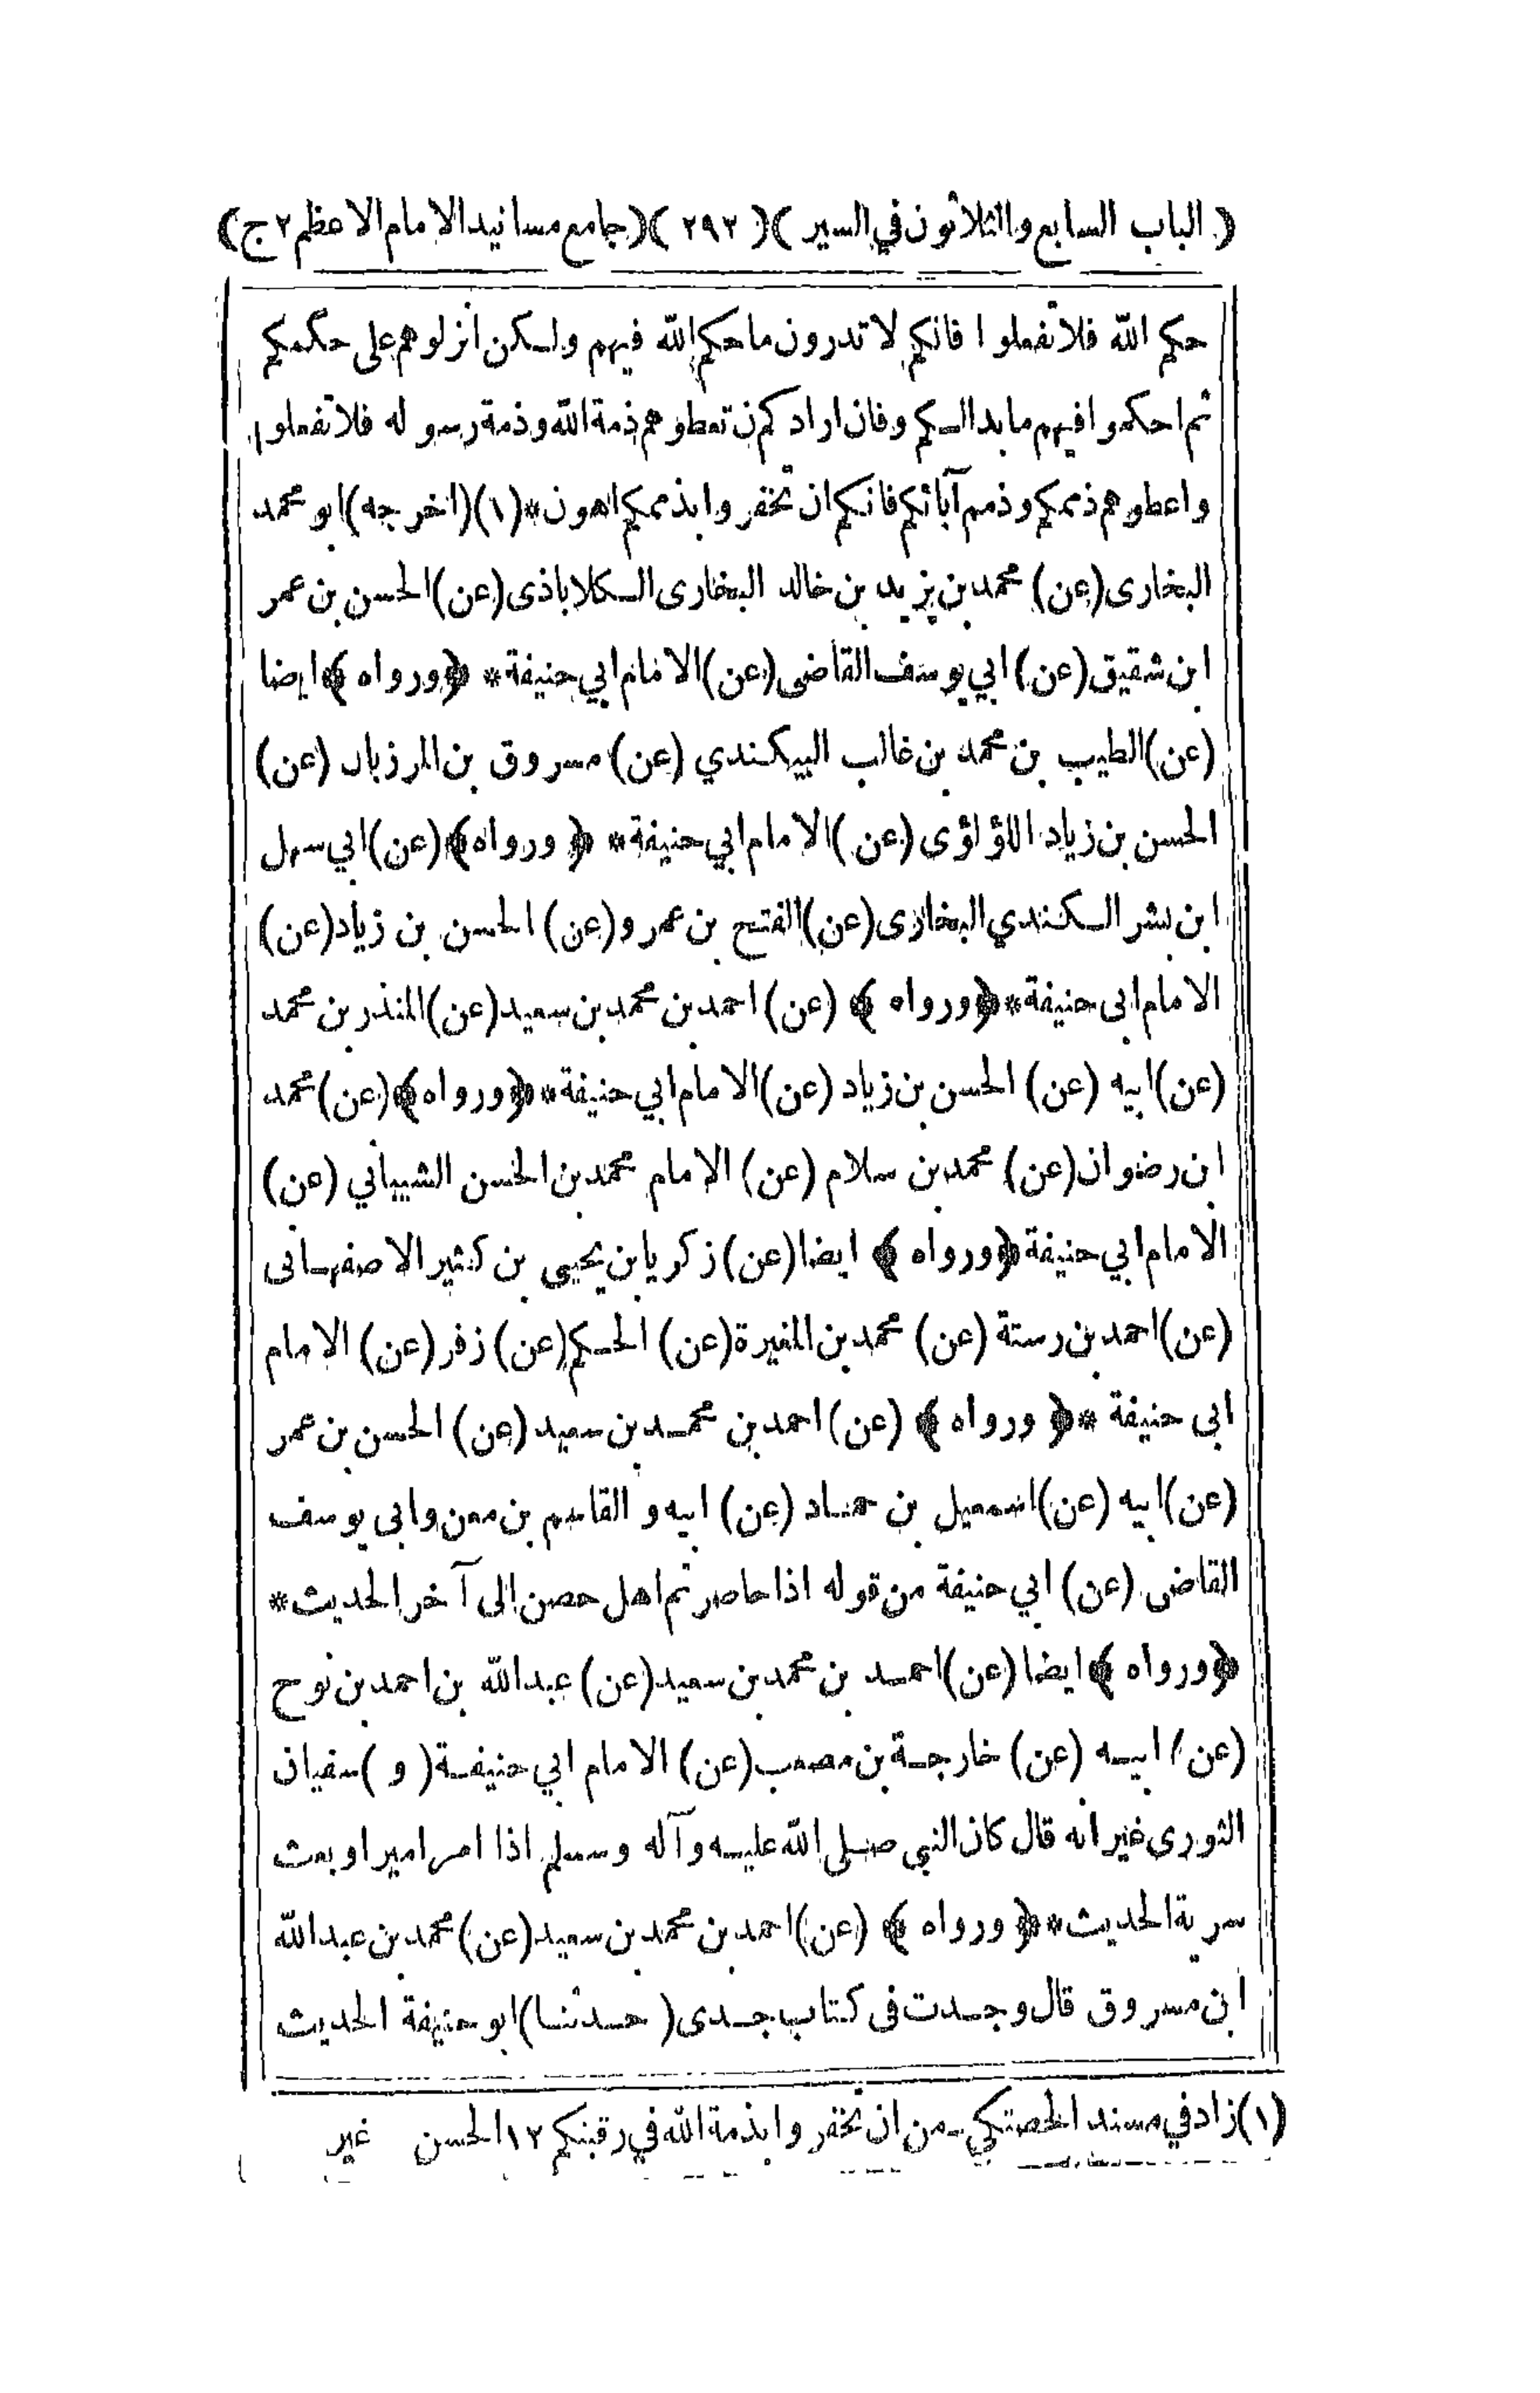 ( الباب السابع والثلاثون في السير )( ٢٩٢ )( جامع مسانيد الامام الاعظم ٢ ج)
حكم الله فلا تفعلوا فانكم لا تدرون ما حكم الله فيهم ولكن انزلوهم على حكمكم
ثم احكموا فيهم ما بدا لكم وفان ارادكم ن تعطوهم ذمة الله وذمة رسوله فلا تفعلوا
واعطوهم ذممكم وذمم آبائكم فانكم ان تخفروا بذممكم اهون*(١)(اخرجه)ابو محمد
البخارى(عن) محمد بن يزيد بن خالد البخارى الكلاباذى(عن)الحسن بن عمر
ابن شقيق(عن)ابي يوسف القاضى(عن)الامام ابي حنيفة* ﴿ورواه﴾ايضا
(عن)الطيب بن محمد بن غالب البيكندي (عن) مسروق بن المرزبان (عن)
الحسن بن زياد اللؤلؤى (عن )الامام ابي حنيفة* ﴿ ورواه﴾(عن)ابي سهل
ابن بشر الكندي البخارى(عن)الفتح بن عمرو(عن) الحسن بن زياد(عن)
الامام ابى حنيفة*﴿ورواه ﴾ (عن)احمد بن محمد بن سعيد(عن)المنذر بن محمد
(عن)ابيه (عن) الحسن بن زياد (عن)الامام ابي حنيفة*﴿ورواه﴾(عن)محمد
ابن رضوان(عن) محمد بن سلام (عن) الامام محمد بن الحسن الشيباني (عن)
الامام ابي حنيفة ﴿ورواه ﴾ ايضا(عن)زكريا بن يحيى بن كثير الاصفهانى
(عن)احمد بن رستة (عن) محمد بن المغيرة(عن) الحكم(عن) زفر(عن) الامام
ابى حنيفة *﴿ ورواه ﴾ (عن)احمد بن محمد بن سعيد (عن) الحسن بن عمر
(عن)ابيه (عن)اسمعيل بن حماد (عن) ابيه و القاسم بن معن وابى يوسف
القاضى (عن) ابي حنيفة من قوله اذا حاصرتم اهل حصن الى آخر الحديث*
﴿ورواه ﴾ايضا(عن)احمد بن محمد بن سعيد(عن) عبدالله بن احمد بن نوح
(عن) ابيه (عن) خارجة بن مصعب(عن) الامام ابي حنيفة( و )سفيان
الثورى غير انه قال كان النبي صلى الله عليه وآله وسلم اذا امر اميرا او بعث
سرية الحديث*﴿ ورواه ﴾ (عن)احمد بن محمد بن سعيد(عن)محمد بن عبدالله
ابن مسروق قال وجدت فى كتاب جدى( حدثنا)ابو حنيفة الحديث
(١)زاد في مسند الحصتكي-من ان تخفروا بذمة الله في رقبتكم ١٢ الحسن غير